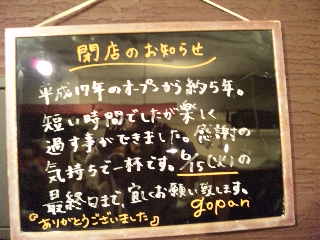 閉店のお知らせ
平成17年のオープンから約5年。
短い時間でしたが楽しく
過す事ができました。感謝の
気持ちで一杯です。6/15(火)の
最終日まで、宜しくお願い致します。
gopan
『ありがとうございました』